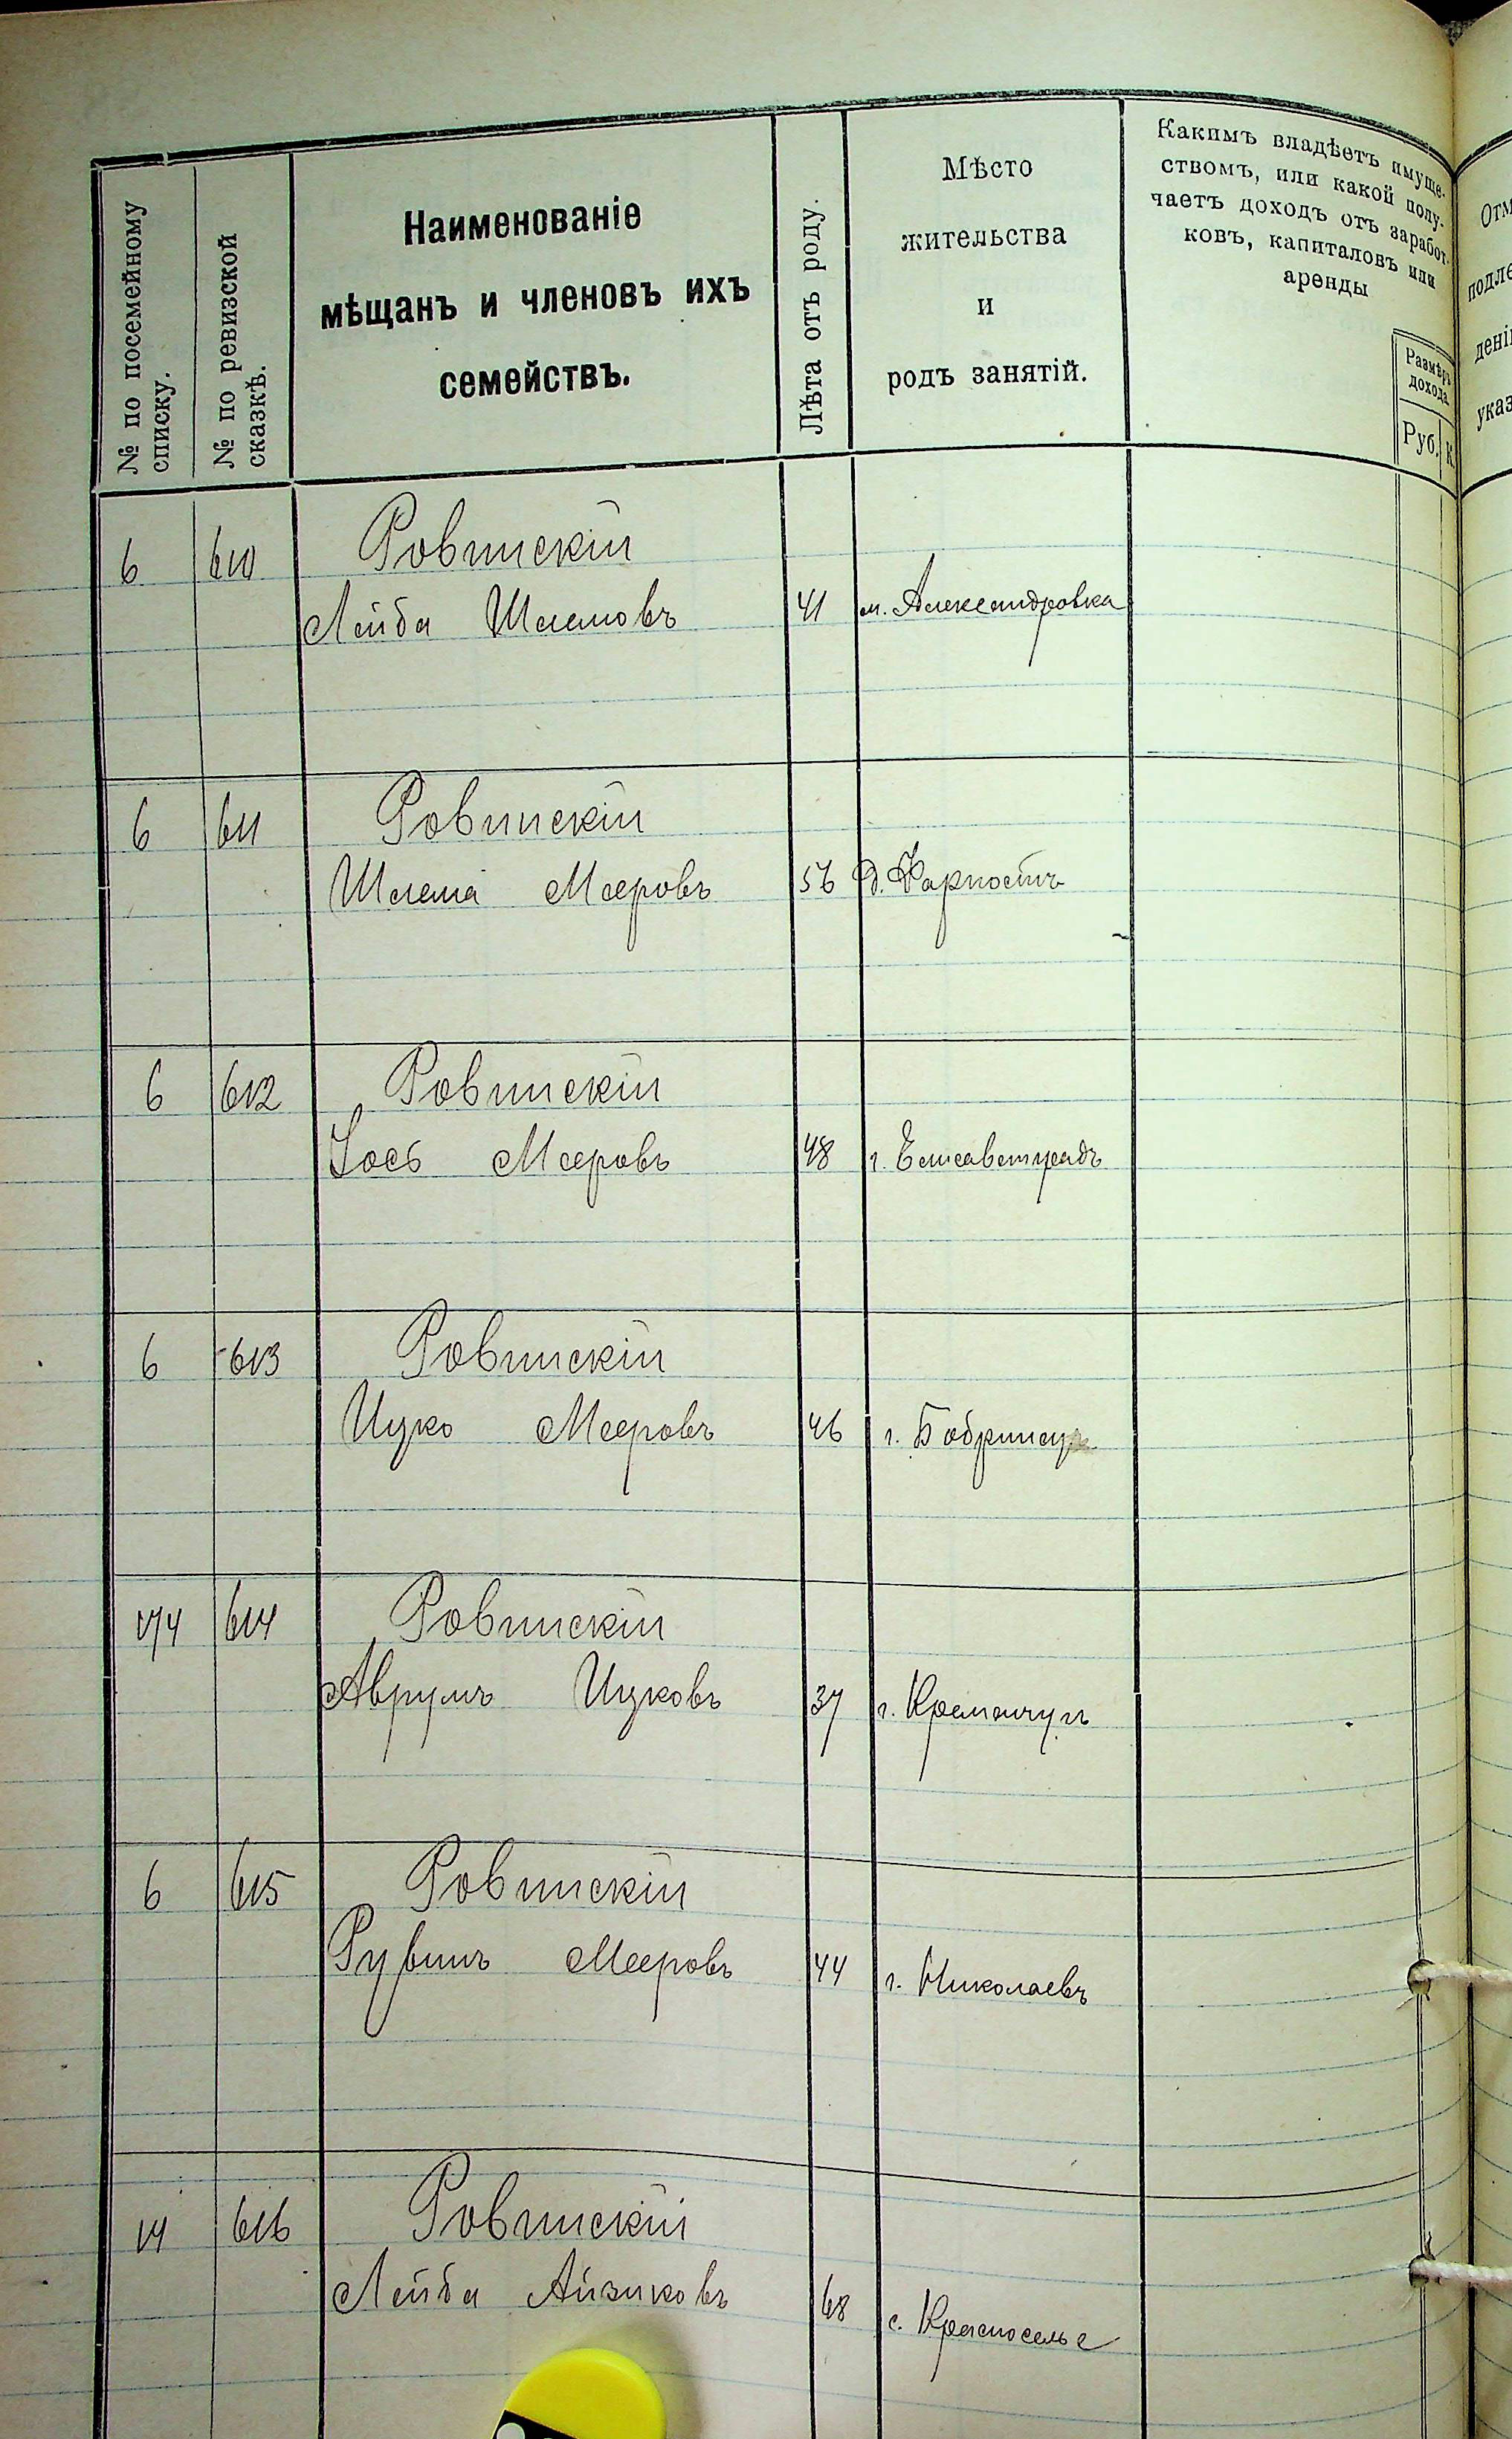 № по посемейному
списку.
№ по ревизской
сказкѣ.
Наименованіе
мѣщанъ и членовъ ихъ
семействъ.
Лѣта отъ роду.
Мѣсто
жительства
и
родъ занятій.
Какимъ владѣетъ имуще-
ствомъ, или какой полу-
чаетъ доходъ отъ заработ-
ковъ, капиталовъ или
аренды
Размѣръ
дохода.
Руб. К.
6 610 Ровинскій
Лейба Шлемовъ 41 м. Александровка
6 611 Ровинскій
Шлема Мееровъ 56 Д.
6 612 Ровинскій
Іось Мееровъ 48 г. Елисаветградъ
6 613 Ровинскій
Ицко Мееровъ 46 г. Бобринецъ
174 614 Ровинскій
Аврумъ Ицковъ 37 г. Кременчугъ
6 615 Ровинскій
Рувинъ Мееровъ 44 г. Николаевъ
14 616 Ровинскій
Лейба Айзиковъ 68 с. Красноселье